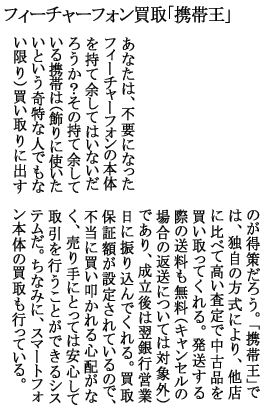 フィーチャーフォン買取「携帯王」
あなたは、不要になった
フィーチャーフォンの本体
を持て余してはいないだ
ろうか？その持て余して
いる携帯は（飾りに使いた
いという奇特な人でもな
い限り）買い取りに出す
のが得策だろう。「携帯王」で
は、独自の方式により、他店
に比べて高い査定で中古品を
買い取ってくれる。発送する
際の送料も無料（キャンセルの
場合の返送については対象外）
であり、成立後は翌銀行営業
日に振り込んでくれる。買取
保証額が設定されているので、
不当に買い叩かれる心配がな
く、売り手にとっては安心して
取引を行うことができるシス
テムだ。ちなみに、スマートフォ
ン本体の買取も行っている。